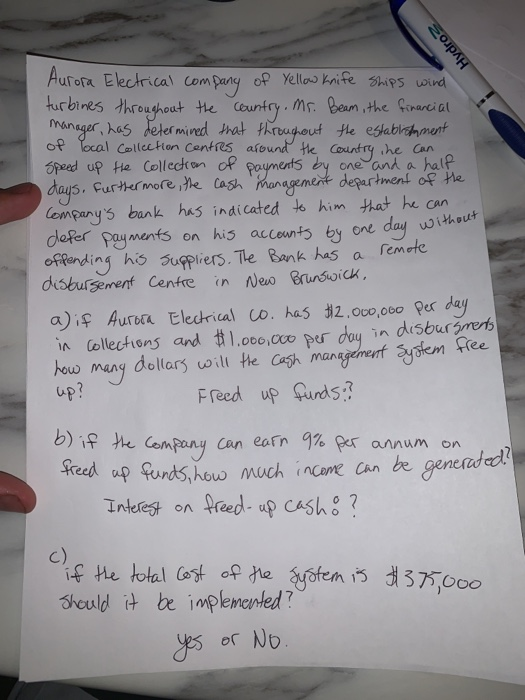 Hydro2
Aurora Electrical company of Yellowknife ships wind
turbines throughout the country. Mr. Beam, the financial
manager, has determined that throughout the establishment
of local collection centres around the country, he can
speed up the collection of payments by one and a half
days. Furthermore, the cash management department of the
Company's bank has indicated to him that he can
defer payments on his accounts by one day without
offending his suppliers. The Bank has a remote
disbursement Centre in New Brunswick.
a) if Aurora Electrical CO. has $2,000,000 per day
in collections and $1,000,000 per day in disbursments
how many dollars will the cash management system free
up? Freed up funds:?
b) if the company can earn 9% per annum on
freed up funds, how much income can be generated?
Interest on freed-up cash: ?
c)
if the total cost of the system is $375,000
should it be implemented?
yes or No.